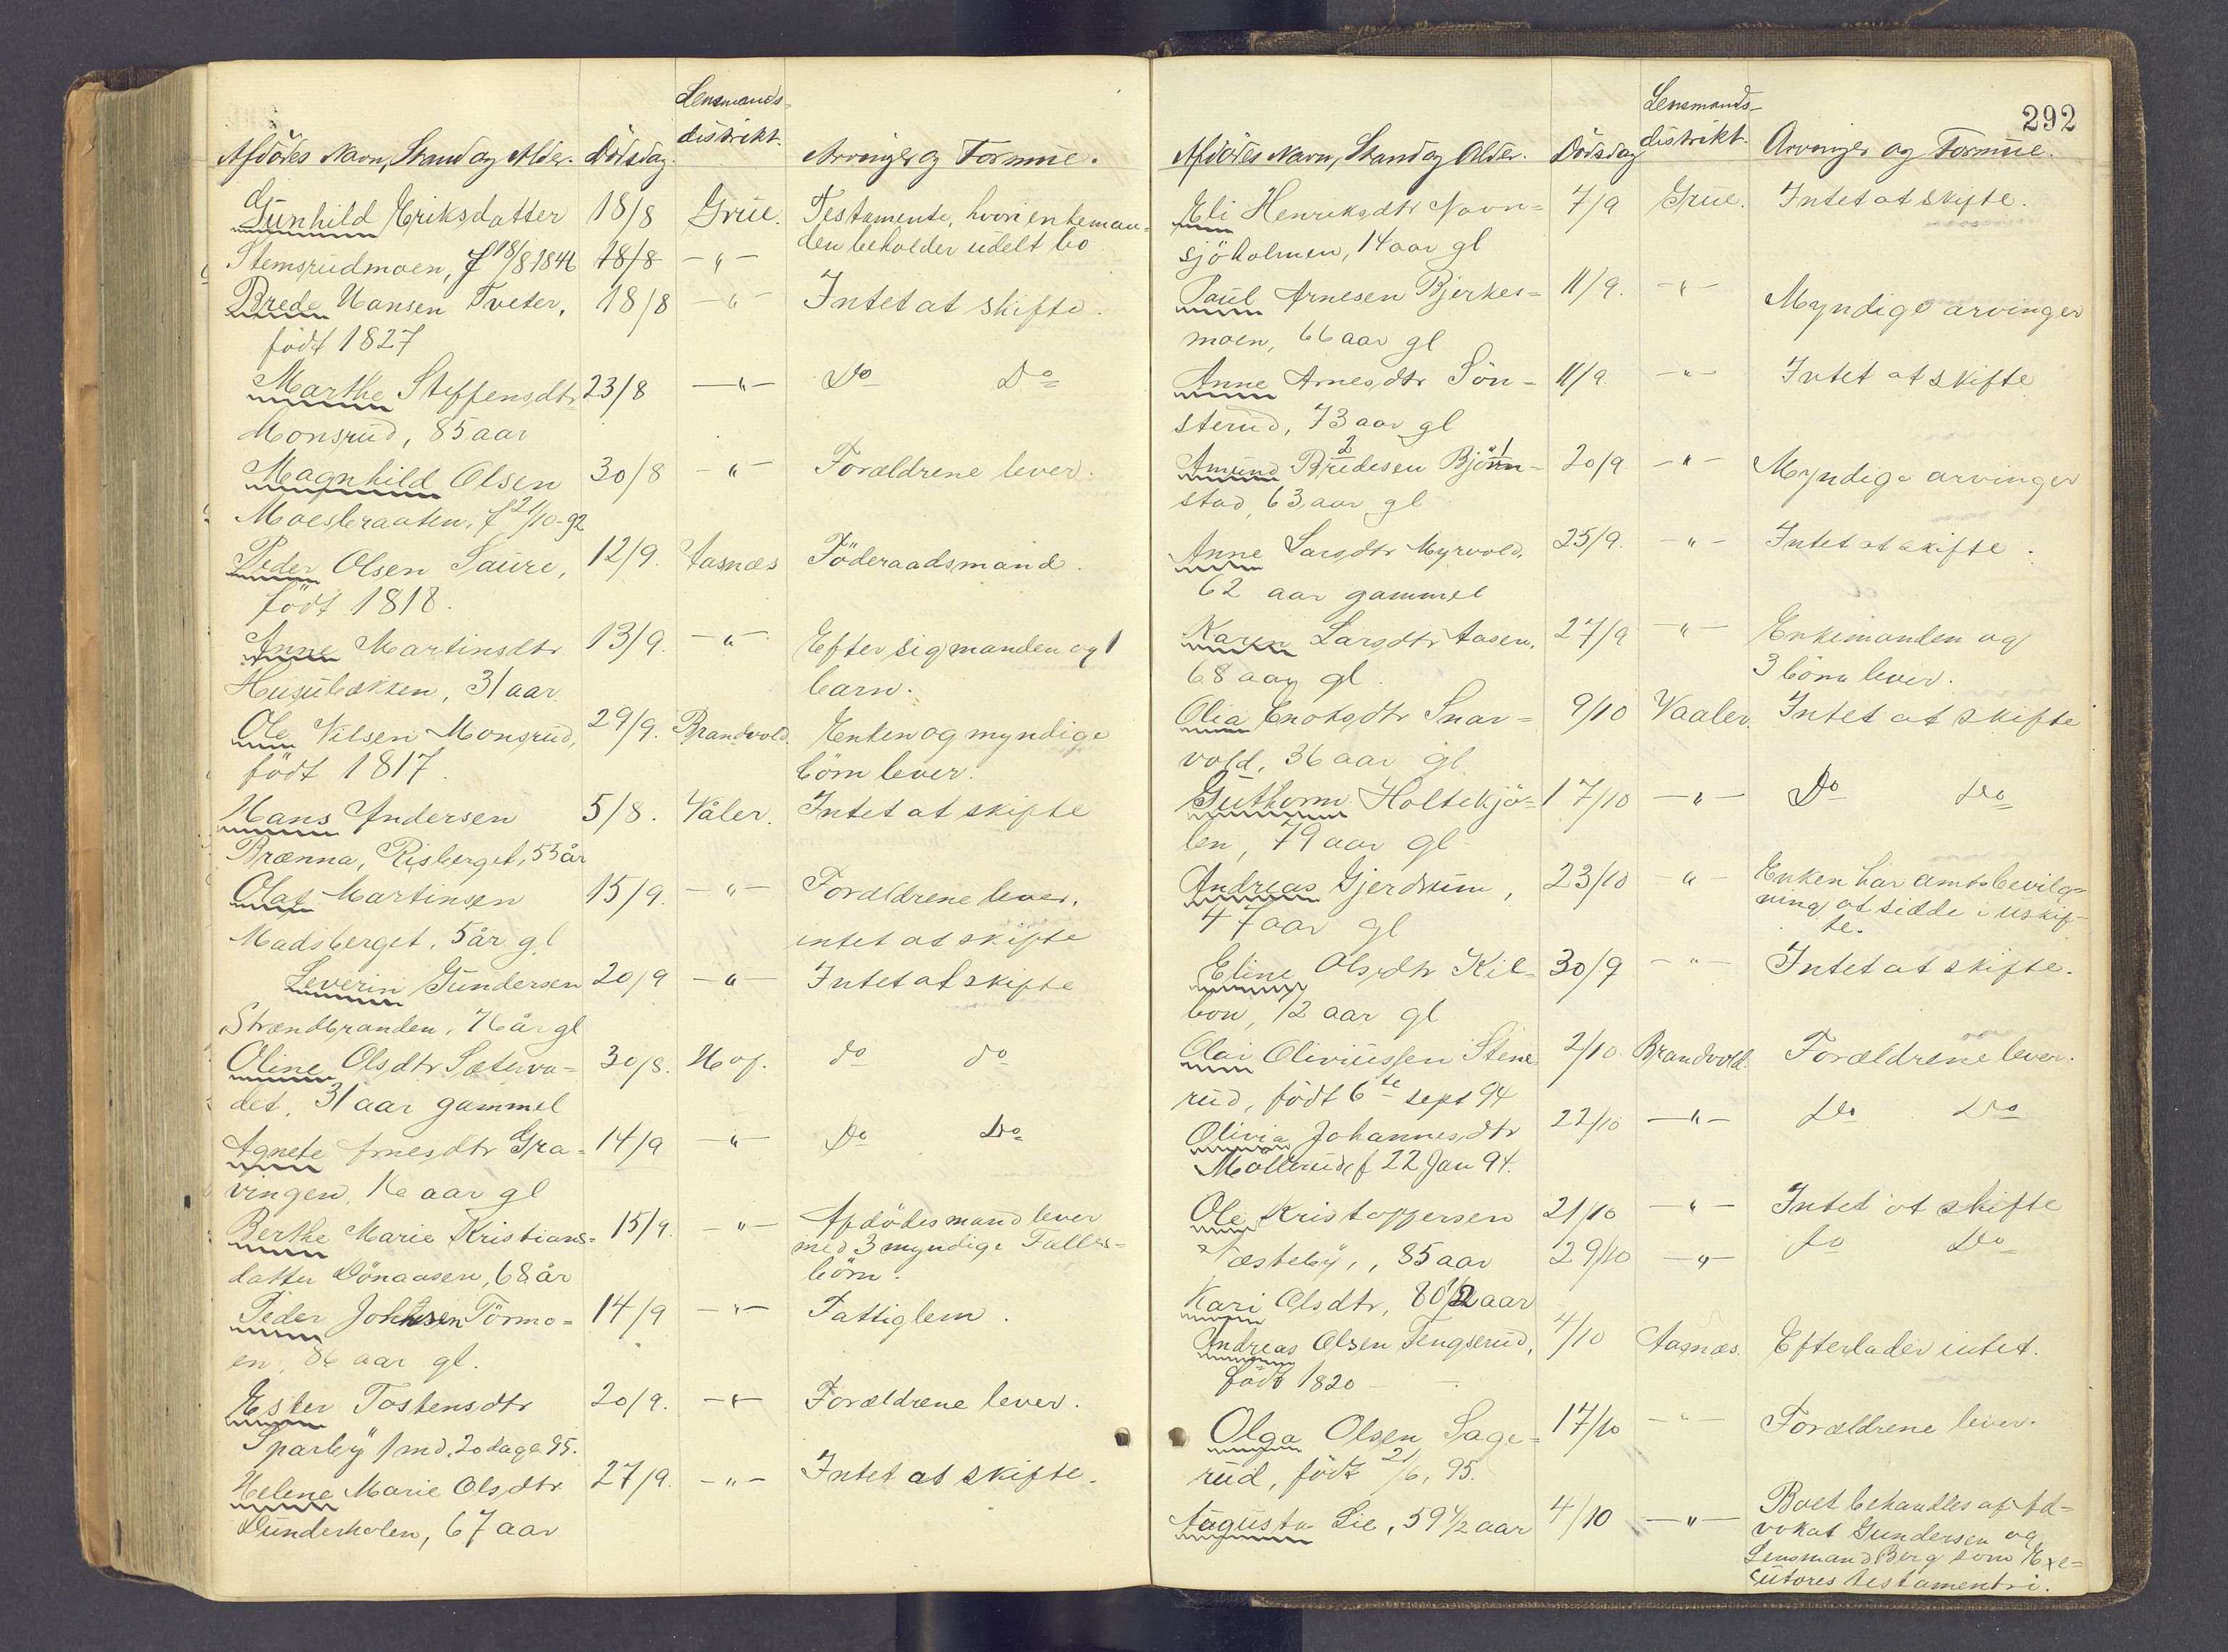 Lensmands-
Afdødes Navn, Stand og Alder. Dødsdag. distrikt. Arvinger og Formue.
Gunhild Eriksdatter 18/8 Grue. Testamente, hvori enkeman-
den beholder udelt bo
Stemsrudmoen, f 18/8 1846 18/8 -"-
Brede Hansen Tveter, 18/8 -"- Intet at skifte.
født 1827
Marthe Steffensdtr 23/8 -"- Do Do
Monsrud, 85 aar
Magnhild Olsen 30/8 -"- Forældrene lever.
Moesbraaten, f 21/10-92
Peder Olsen Saure, 12/9. Aasnæs Föderaadsmand.
født 1818.
Anne Martinsdtr 13/9. -"- Efter sig manden og 1
Husubækken, 31 aar barn.
Ole Nilsen Monsrud, 29/9. Brandvold. Enken og myndige
født 1817. børn lever.
Hans Andersen 5/8. Våler. Intet at skifte
Brænna, Risberget, 55 år
Olaf Martinsen 15/9. -"- Forældrene lever,
Madsberget, 5 år gl intet at skifte
Severin Gundersen 20/9 -"- Intet at skifte
Strandbranden, 76 år gl
Oline Olsdtr Sæterva- 30/8. Hof. do do
det, 31 aar gammel
Agnete Arnesdtr Gra- 14/9 -"- Do Do
vingen, 16 aar gl
Berthe Marie Kristians- 15/9. -"- Afdødes mand lever
med 3 myndige Fælles-
datter Dönaasen, 68 år börn.
Peder Johnsen Törmo- 14/9 -"- Fattiglem.
en, 86 aar gl.
Ester Tostensdtr 20/9. -"- Forældrene lever.
Sparby 1 md. 20 dage 95.
Helene Marie Olsdtr 27/9. -"- Intet at skifte.
Dunderholen, 67 aar
292
Lensmands-
Afdødes Navn, Stand og Alder. Dødsdag distrikt. Arvinger og Formue.
Eli Henriksdtr Navn- 7/9 Grue. Intet at skifte.
sjöholmen, 14 aar gl
Paul Arnesen Bjerkes- 11/9. -"- Myndige arvinger
moen, 66 aar gl
Anne Arnesdtr Sön- 11/9. -"- Intet at skifte
sterud, 73 aar gl
Amund Bredesen Björn- 20/9. -"- Myndige arvinger
stad, 63 aar gl
Anne Larsdtr Myrvold, 25/9. -"- Intet at skifte.
62 aar gammel
Karen Larsdtr Aasen, 27/9 -"- Enkemanden og
68 aar gl. 3 börn lever.
Olia Enoksdtr Snar- 9/10 Vaaler. Intet at skifte
vold, 36 aar gl.
Guthorm Holtekjö- 17/10 -"- Do Do
len, 79 aar gl
Andreas Gjerdrum, 23/10 -"- Enken har amtsbevilg-
ning at sidde i uskif-
47 aar gl te.
Eline Olsdtr Kil- 30/9 -"- Intet at skifte.
bon, 12 aar gl
Olai Oliviussen Stene 2/10 Brandvold. Forældrene lever.
rud, født 6te sept 94
Olivia Johannesdtr 22/10 -"- Do Do
Mollerud, f 22 Jan 94.
Ole Kristoffersen 21/10 -"- Intet at skifte
Næsteby,, 85 aar 29/10 -"- Do Do
Kari Olsdtr, 80 1/2 aar
Andreas Olsen Tengserud, 4/10 Aasnæs. Efterlader intet.
født 1820
Olga Olsen Sage- 17/10 -"- Forældrene lever.
rud, født 21/6, 95.
Augusta Lie, 59 1/2 aar 4/10 -"- Boet behandles af Ad-
vokat Gundersen og
Lensmand Berg som Exe-
cutores testamentri.